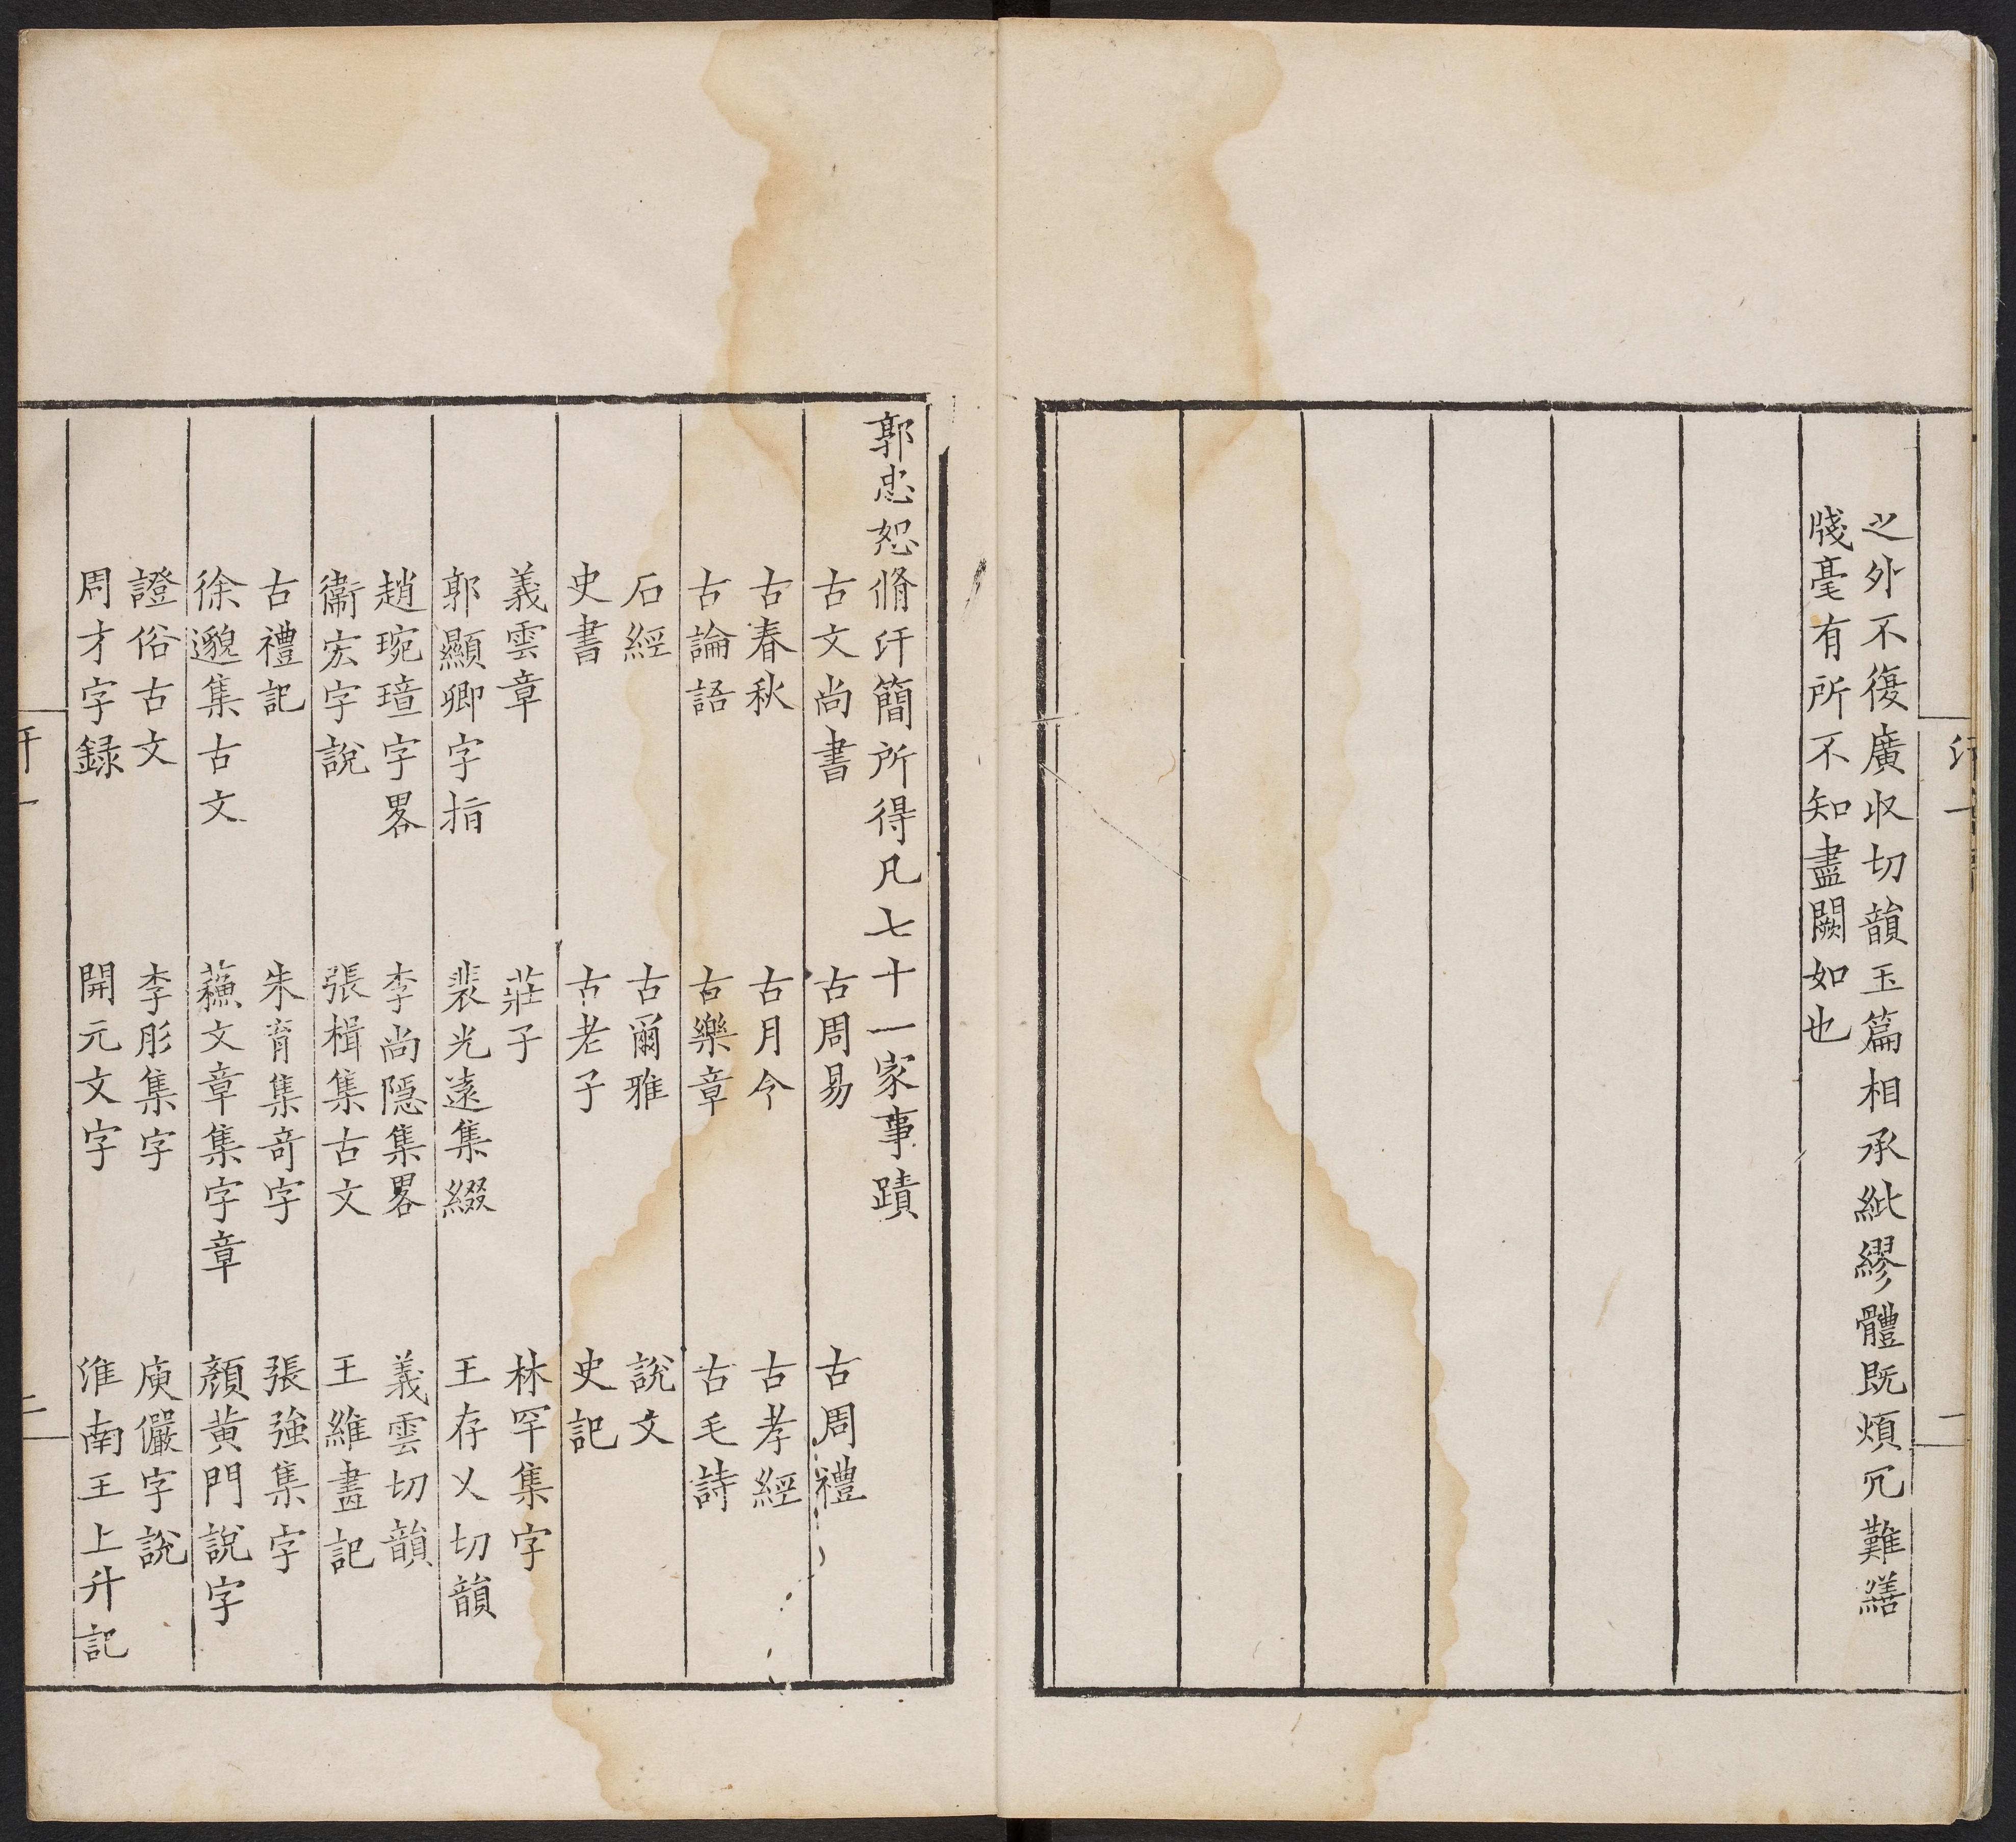 之外不復廣収切韻玉篇相承紕繆體既煩冗難繕
牋毫有所不知盡闕如也
郭忠恕脩汗簡所得凡七十一家事蹟
古文尚書 古周易 古周禮
古春秋 古月令 古孝經
古論語 古樂章 古毛詩
石經 古爾雅 說文
史書 古老子 史記
義雲章 莊子 林罕集字
郭顯卿字指 裴光遠集綴 王存乂切韻
趙琬璋字畧 李尚隱集畧 義雲切韻
衞宏字說 張楫集古文 王維畫記
古禮記 朱育集奇字 張強集字
徐邈集古文 蘓文章集字章 顏黄門說字
證俗古文 李彤集字 庾儼字說
周才字録 開元文字 淮南王上升記